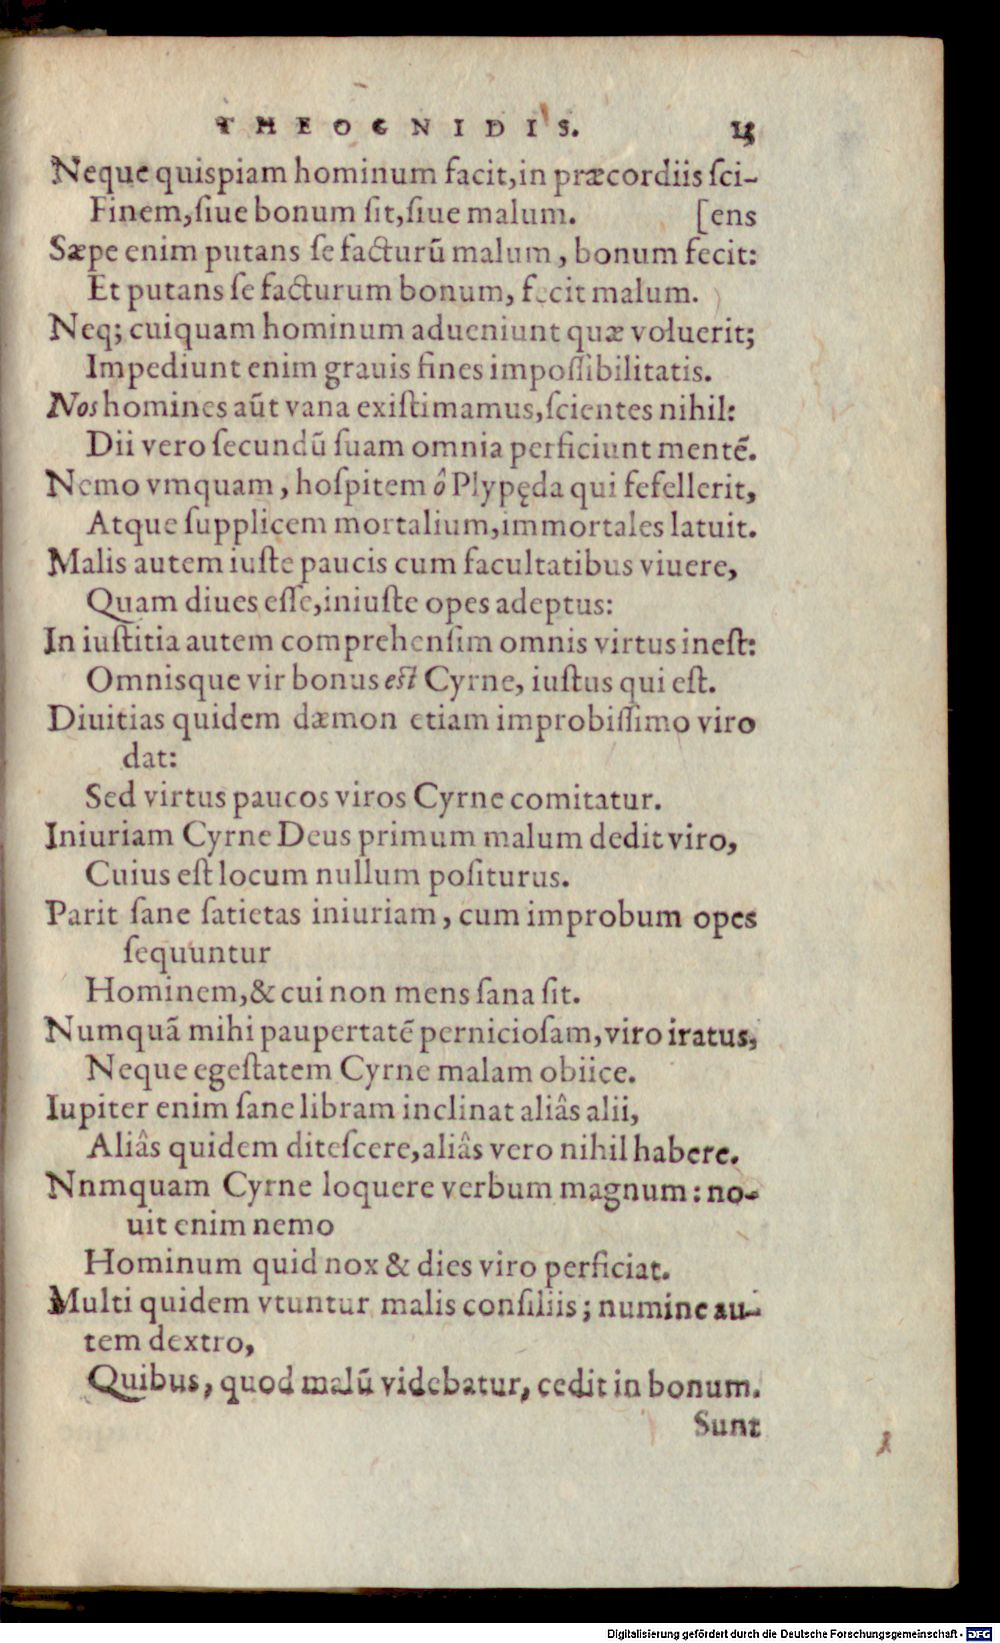 THEOGNIDIS. 15
Neque quispiam hominum facit, in præcordiis ſci-
Finem, ſiue bonum ſit, ſiue malum. [ens
Sæpe enim putans ſe facturū malum, bonum fecit:
Et putans ſe facturum bonum, fecit malum.
Neq; cuiquam hominum adueniunt quæ voluerit;
Impediunt enim grauis fines impoſſibilitatis.
Nos homines aūt vana exiſtimamus, ſcientes nihil:
Dii vero ſecundū ſuam omnia perficiunt mentē.
Nemo vmquam, hoſpitem ô Plypęda qui fefellerit,
Atque ſupplicem mortalium, immortales latuit.
Malis autem iuſte paucis cum facultatibus viuere,
Quam diues eſſe, iniuſte opes adeptus:
In iuſtitia autem comprehenſim omnis virtus ineſt:
Omnisque vir bonus eſt Cyrne, iuſtus qui eſt.
Diuitias quidem dæmon etiam improbiſſimo viro
dat:
Sed virtus paucos viros Cyrne comitatur.
Iniuriam Cyrne Deus primum malum dedit viro,
Cuius eſt locum nullum poſiturus.
Parit ſane ſatietas iniuriam, cum improbum opes
ſequuntur
Hominem, & cui non mens ſana ſit.
Numquā mihi paupertatē pernicioſam, viro iratus,
Neque egeſtatem Cyrne malam obiice.
Iupiter enim ſane libram inclinat aliâs alii,
Aliâs quidem diteſcere, aliâs vero nihil habere.
Nnmquam Cyrne loquere verbum magnum: no-
uit enim nemo
Hominum quid nox & dies viro perficiat.
Multi quidem vtuntur malis conſiliis; numine au-
tem dextro,
Quibus, quod malū videbatur, cedit in bonum.
Sunt
Digitalisierung gefördert durch die Deutsche Forschungsgemeinschaft - DFG